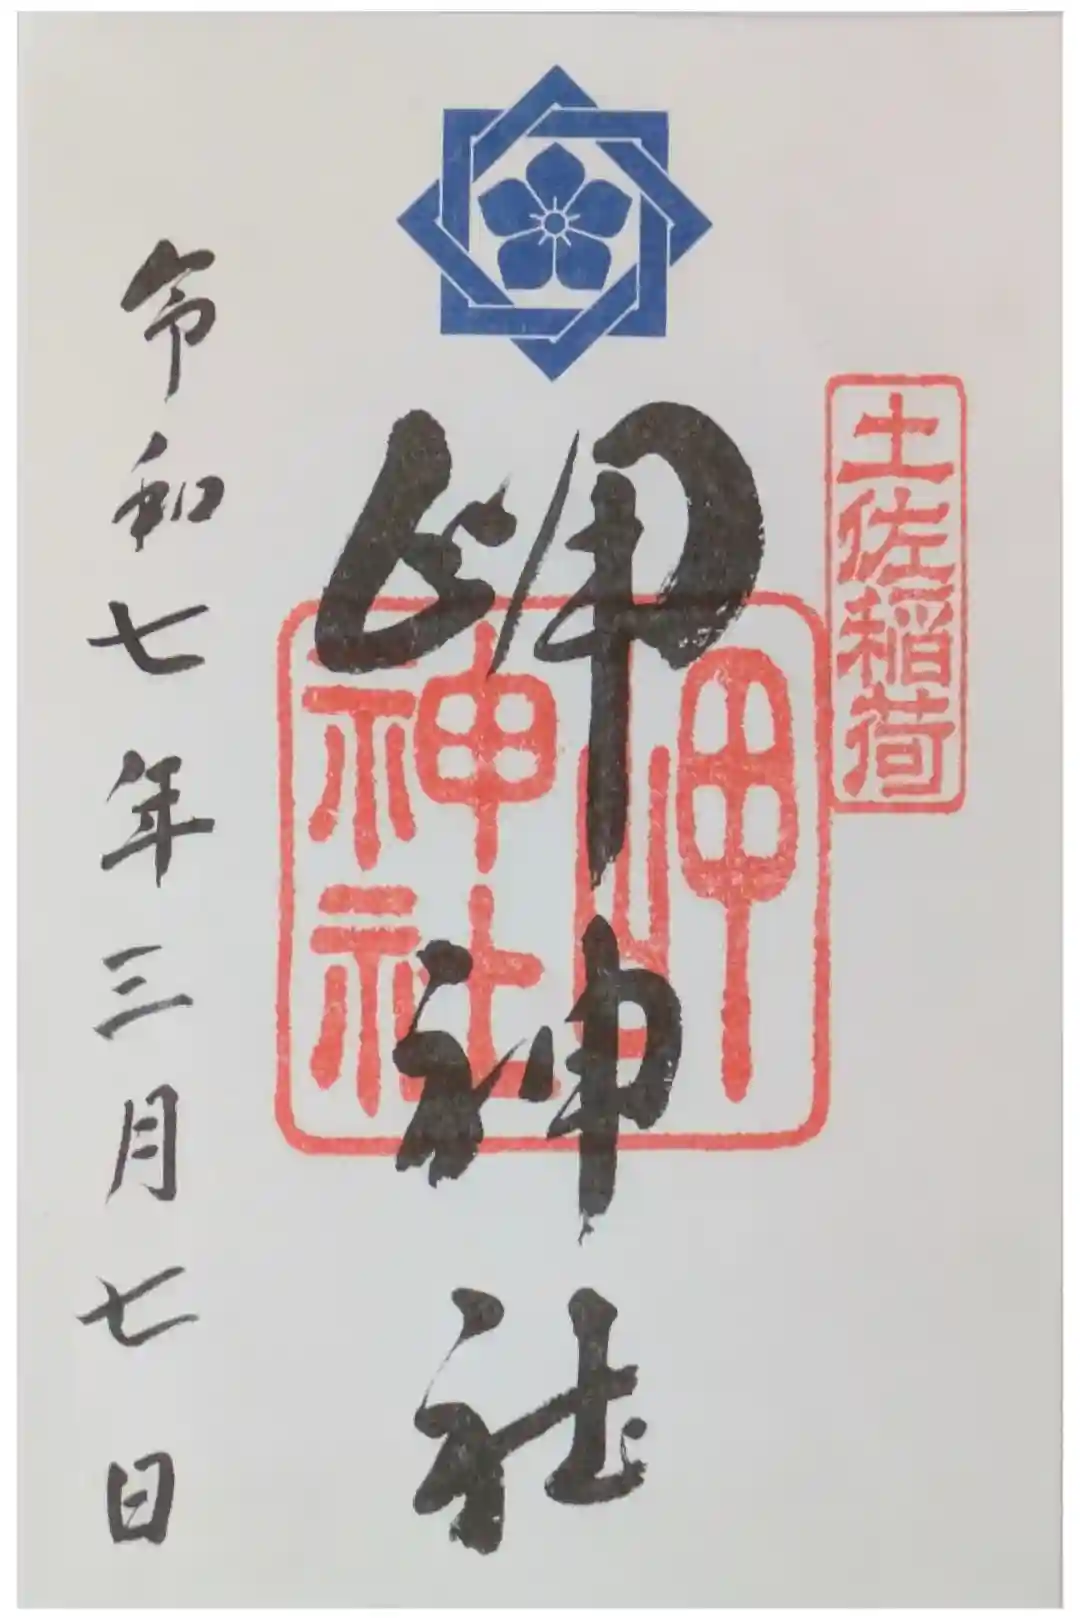 土佐稲荷
岬神社
岬
神社
令和七年三月七日